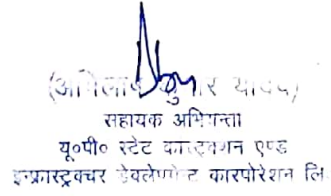 (अभिलाष कुमार यादव)
सहायक अभियन्ता
यू०पी० स्टेट कन्स्ट्रक्शन एण्ड
इन्फ्रास्ट्रक्चर डेवलेपमेन्ट कारपोरेशन लि